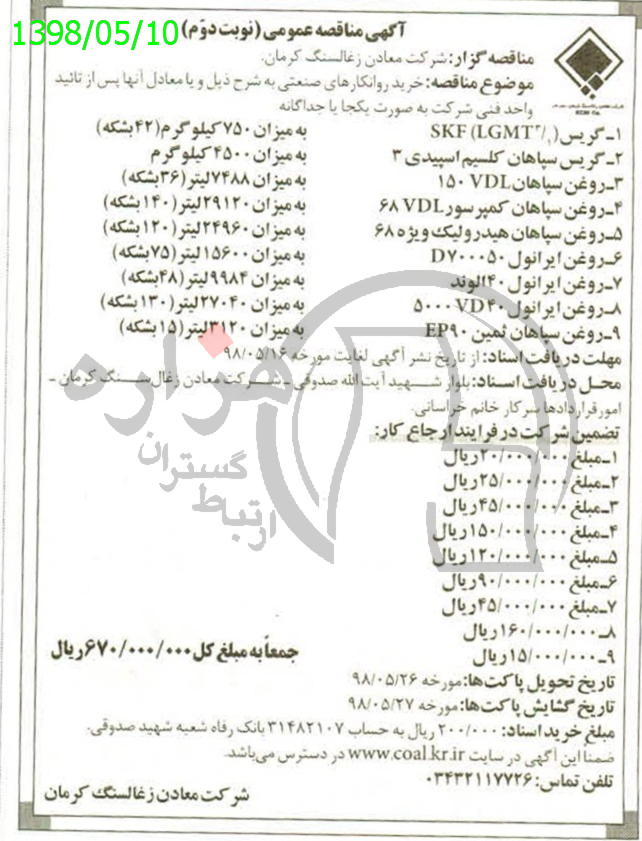 1398/05/10
آگهی مناقصه عمومی (نوبت دوّم)
مناقصه گزار: شرکت معادن زغالسنگ کرمان.
موضوع مناقصه: خرید روانکارهای صنعتی به شرح ذیل و یا معادل آنها پس از تائید
واحد فنی شرکت به صورت یکجا یا جداگانه
۱ـ گریس SKF (LGMT۳/۱) به میزان ۷۵۰ کیلوگرم (۴۲بشکه)
۲ـ گریس سپاهان کلسیم اسپیدی ۳ به میزان ۴۵۰۰ کیلوگرم
۳ـ روغن سپاهان ۱۵۰ VDL به میزان ۷۴۸۸لیتر (۳۶بشکه)
۴ـ روغن سپاهان کمپرسور ۶۸ VDL به میزان ۲۹۱۲۰لیتر (۱۴۰بشکه)
۵ـ روغن سپاهان هیدرولیک ویژه ۶۸ به میزان ۲۴۹۶۰لیتر (۱۲۰بشکه)
۶ـ روغن ایرانول D۷۰۰۰۵۰ به میزان ۱۵۶۰۰لیتر (۷۵بشکه)
۷ـ روغن ایرانول ۴۰ الوند به میزان ۹۹۸۴لیتر (۴۸بشکه)
۸ـ روغن ایرانول ۵۰۰۰ VD۴۰ به میزان ۲۷۰۴۰لیتر (۱۳۰بشکه)
۹ـ روغن سپاهان ثمین EP۹۰ به میزان ۳۱۲۰لیتر (۱۵بشکه)
مهلت دریافت اسناد: از تاریخ نشر آگهی لغایت مورخه ۹۸/۰۵/۱۶
محل دریافت اسناد: بلوار شهید آیت الله صدوقی ـ شرکت معادن زغال سنگ کرمان ـ
امور قراردادها سرکار خانم خراسانی.
تضمین شرکت در فرایند ارجاع کار:
۱ـ مبلغ ۲۰/۰۰۰/۰۰۰ریال
۲ـ مبلغ ۲۵/۰۰۰/۰۰۰ریال
۳ـ مبلغ ۴۵/۰۰۰/۰۰۰ریال
۴ـ مبلغ ۱۵۰/۰۰۰/۰۰۰ریال
۵ـ مبلغ ۱۲۰/۰۰۰/۰۰۰ریال
۶ـ مبلغ ۹۰/۰۰۰/۰۰۰ریال
۷ـ مبلغ ۴۵/۰۰۰/۰۰۰ریال
۸ـ ۱۶۰/۰۰۰/۰۰۰ریال
۹ـ ۱۵/۰۰۰/۰۰۰ریال جمعاً به مبلغ کل ۶۷۰/۰۰۰/۰۰۰ریال
تاریخ تحویل پاکت ها: مورخه ۹۸/۰۵/۲۶
تاریخ گشایش پاکت ها: مورخه ۹۸/۰۵/۲۷
مبلغ خرید اسناد: ۲۰۰/۰۰۰ ریال به حساب ۳۱۴۸۲۱۰۷ بانک رفاه شعبه شهید صدوقی.
ضمناً این آگهی در سایت www.coal.kr.ir در دسترس می‌باشد.
تلفن تماس: ۰۳۴۳۲۱۱۷۷۲۶
شرکت معادن زغالسنگ کرمان
هزاره
گستران
ارتباط